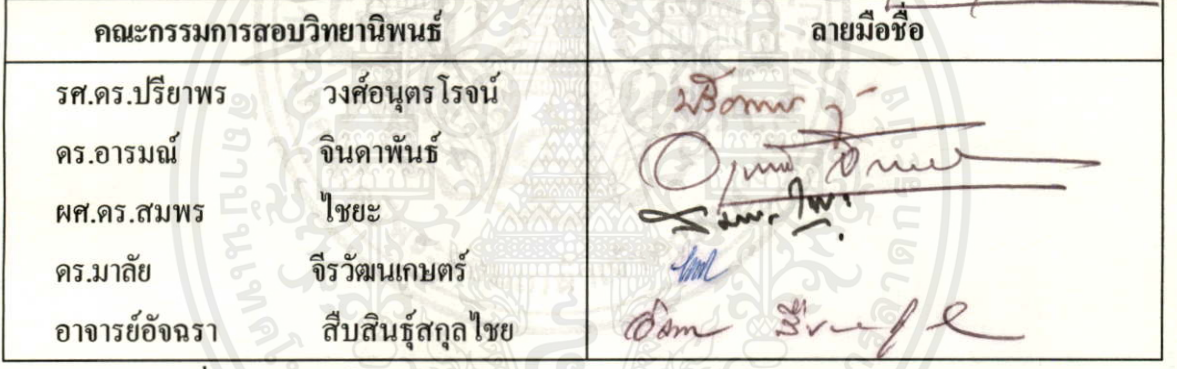 คณะกรรมการสอบวิทยานิพนธ์ ลายมือชื่อ
รศ.ดร.ปรียาพร วงศ์อนุตรโรจน์
ดร.อารมณ์ จินดาพันธ์
ผศ.ดร.สมพร ไชยะ
ดร.มาลัย จีรวัฒนเกษตร์
อาจารย์อัจฉรา สืบสินธุ์สกุลไชย